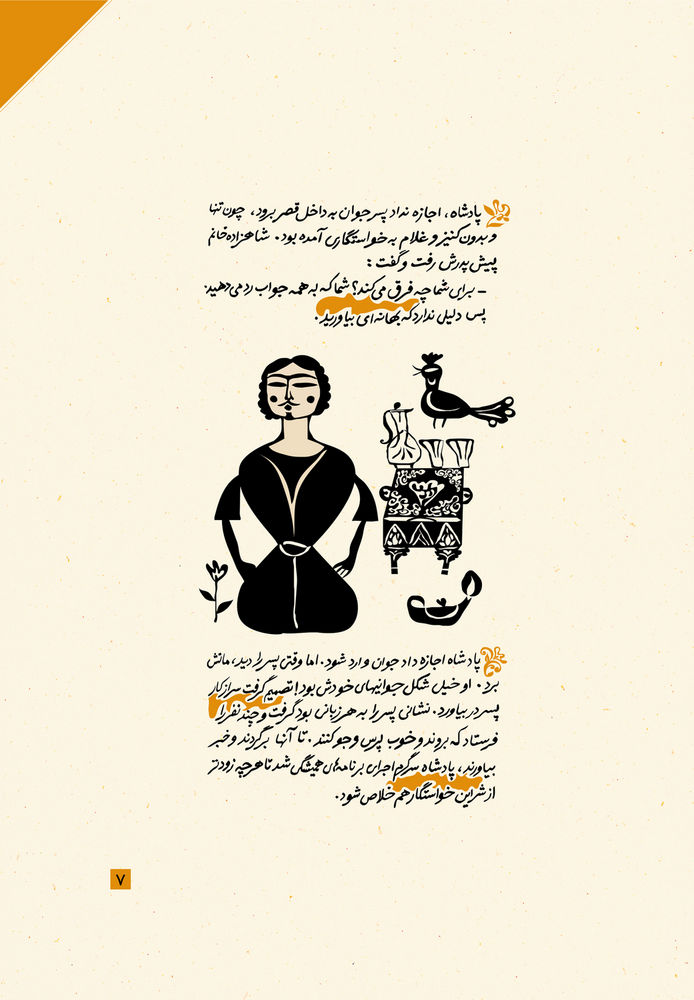 پادشاه، اجازه نداد پسر جوان به داخل قصر برود، چون تنها
و بدون کنیز و غلام به خواستگاری آمده بود. شاهزاده خانم
پیش پدرش رفت و گفت:
- برای شما چه فرق می‌کند؟ شما که به همه جواب رد می‌دهید.
پس دلیل ندارد که بهانه‌ای بیاورید.
پادشاه اجازه داد جوان وارد شود. اما وقتی پسر را دید، ماتش
برد. او خیلی شکل جوانیهای خودش بود! تصمیم گرفت سر از کار
پسر در بیاورد. نشانی پسر را به هر زبانی بود گرفت و چند نفر را
فرستاد که بروند و خوب پرس و جو کنند. تا آنها برگردند و خبر
بیاورند، پادشاه سرگرم اجرای برنامه‌های همیشگی شد تا هر چه زودتر
از شر این خواستگار هم خلاص شود.
۷